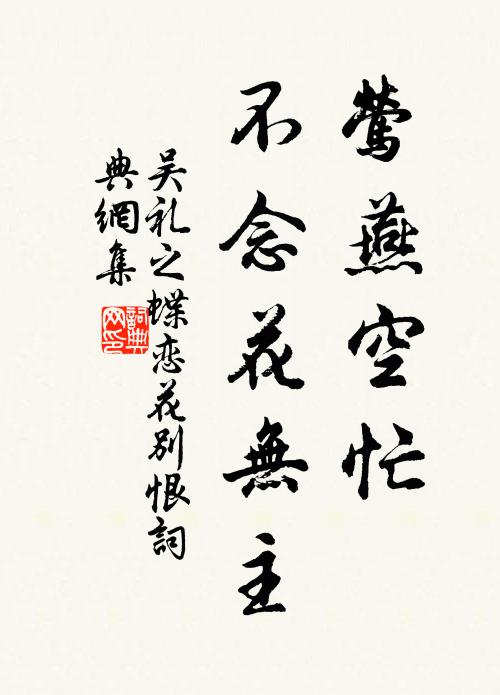 鶯燕空忙
不念花無主
吴礼之蝶恋花别恨詞
典網集
詞典
网印